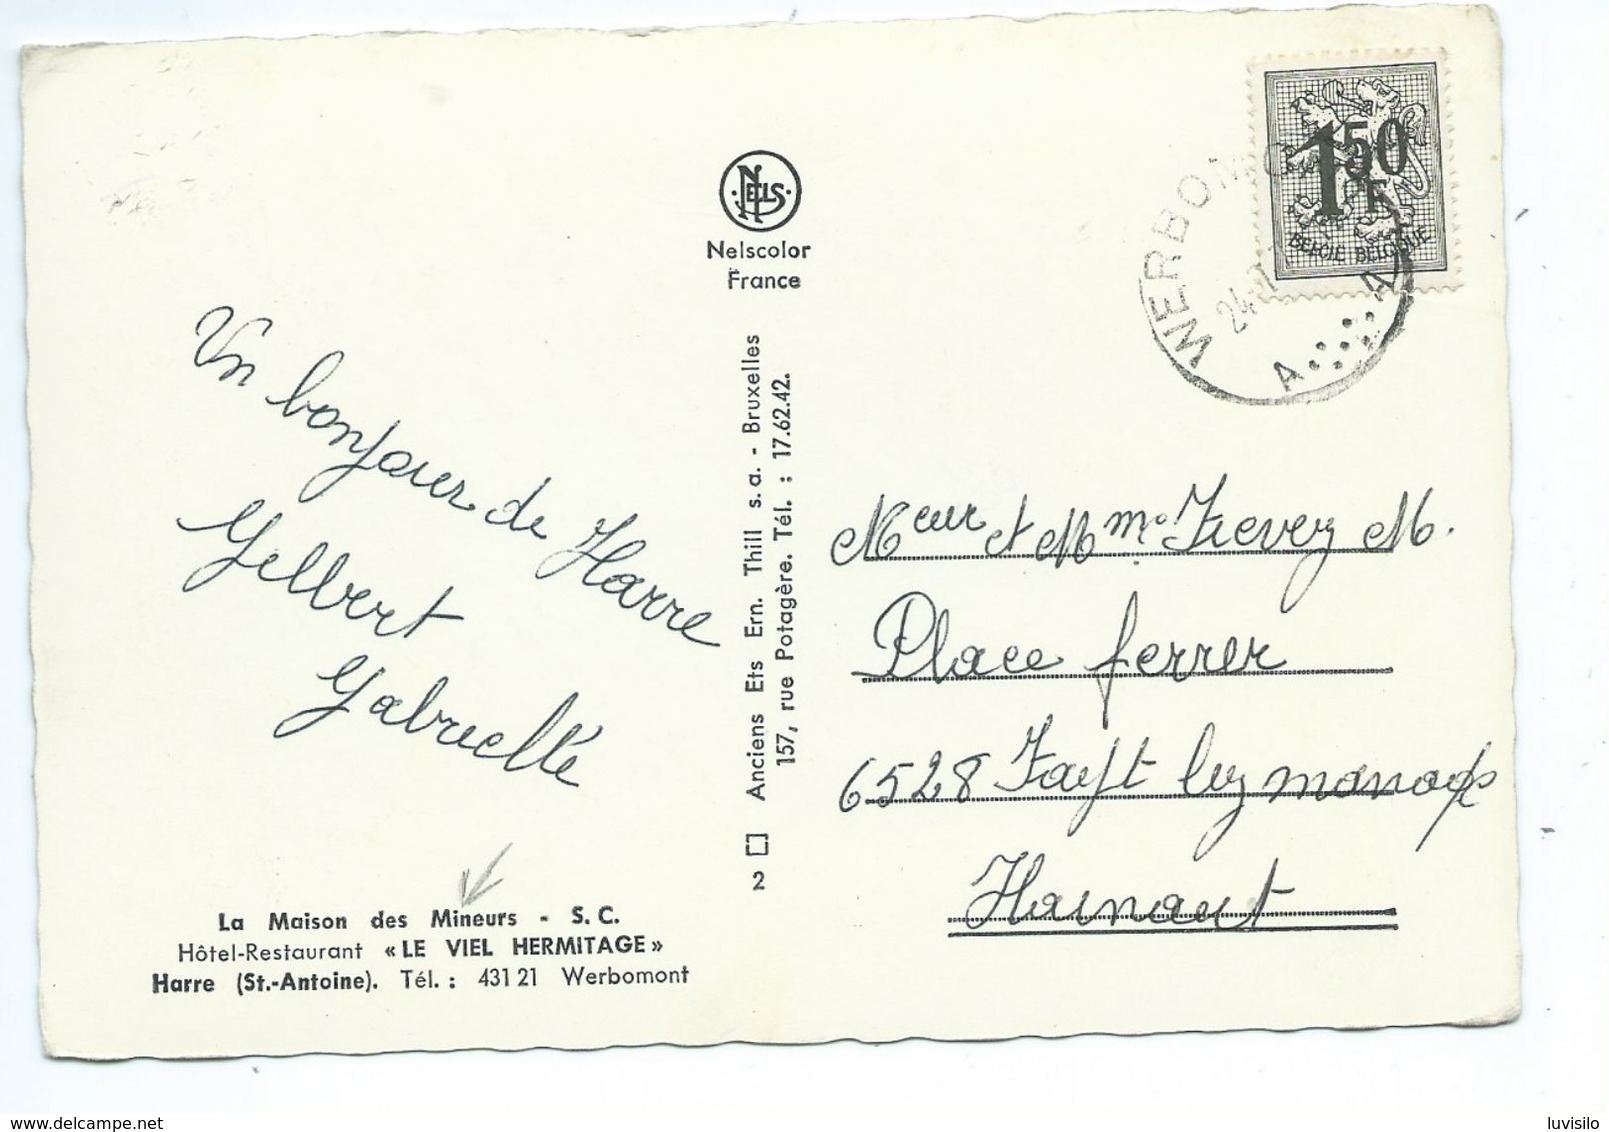 Un bonjour de Harre
Gilbert
Gabrielle
La Maison des Mineurs - S. C.
Hôtel-Restaurant « LE VIEL HERMITAGE »
Harre (St.-Antoine). Tél. : 431 21 Werbomont
NELS
Nelscolor
France
Anciens Ets Ern. Thill s. a. - Bruxelles
157, rue Potagère. Tél. : 17.62.42.
2
WERBOMO
24-7
A
A
1 50
F
BELGIE BELGIQUE
Meur et Mme Fievez M.
Place ferrer
6528 Fayt lez manage
Hainaut
luvisilo